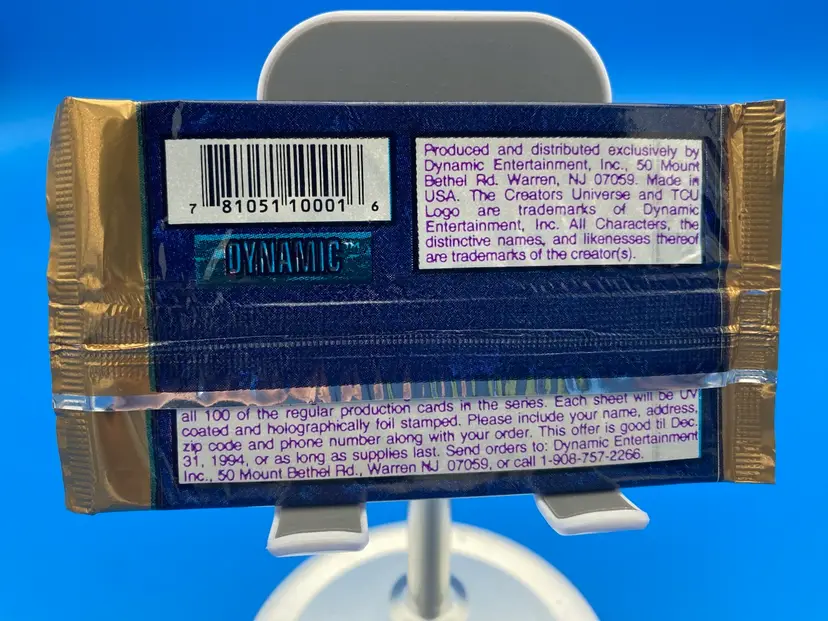 7 81051 10001 6
DYNAMIC™
Produced and distributed exclusively by
Dynamic Entertainment, Inc., 50 Mount
Bethel Rd. Warren, NJ 07059. Made in
USA. The Creators Universe and TCU
Logo are trademarks of Dynamic
Entertainment, Inc. All Characters, the
distinctive names, and likenesses thereof
are trademarks of the creator(s).
all 100 of the regular production cards in the series. Each sheet will be UV
coated and holographically foil stamped. Please include your name, address,
zip code and phone number along with your order. This offer is good til Dec.
31, 1994, or as long as supplies last. Send orders to: Dynamic Entertainment
Inc., 50 Mount Bethel Rd., Warren NJ 07059, or call 1-908-757-2266.